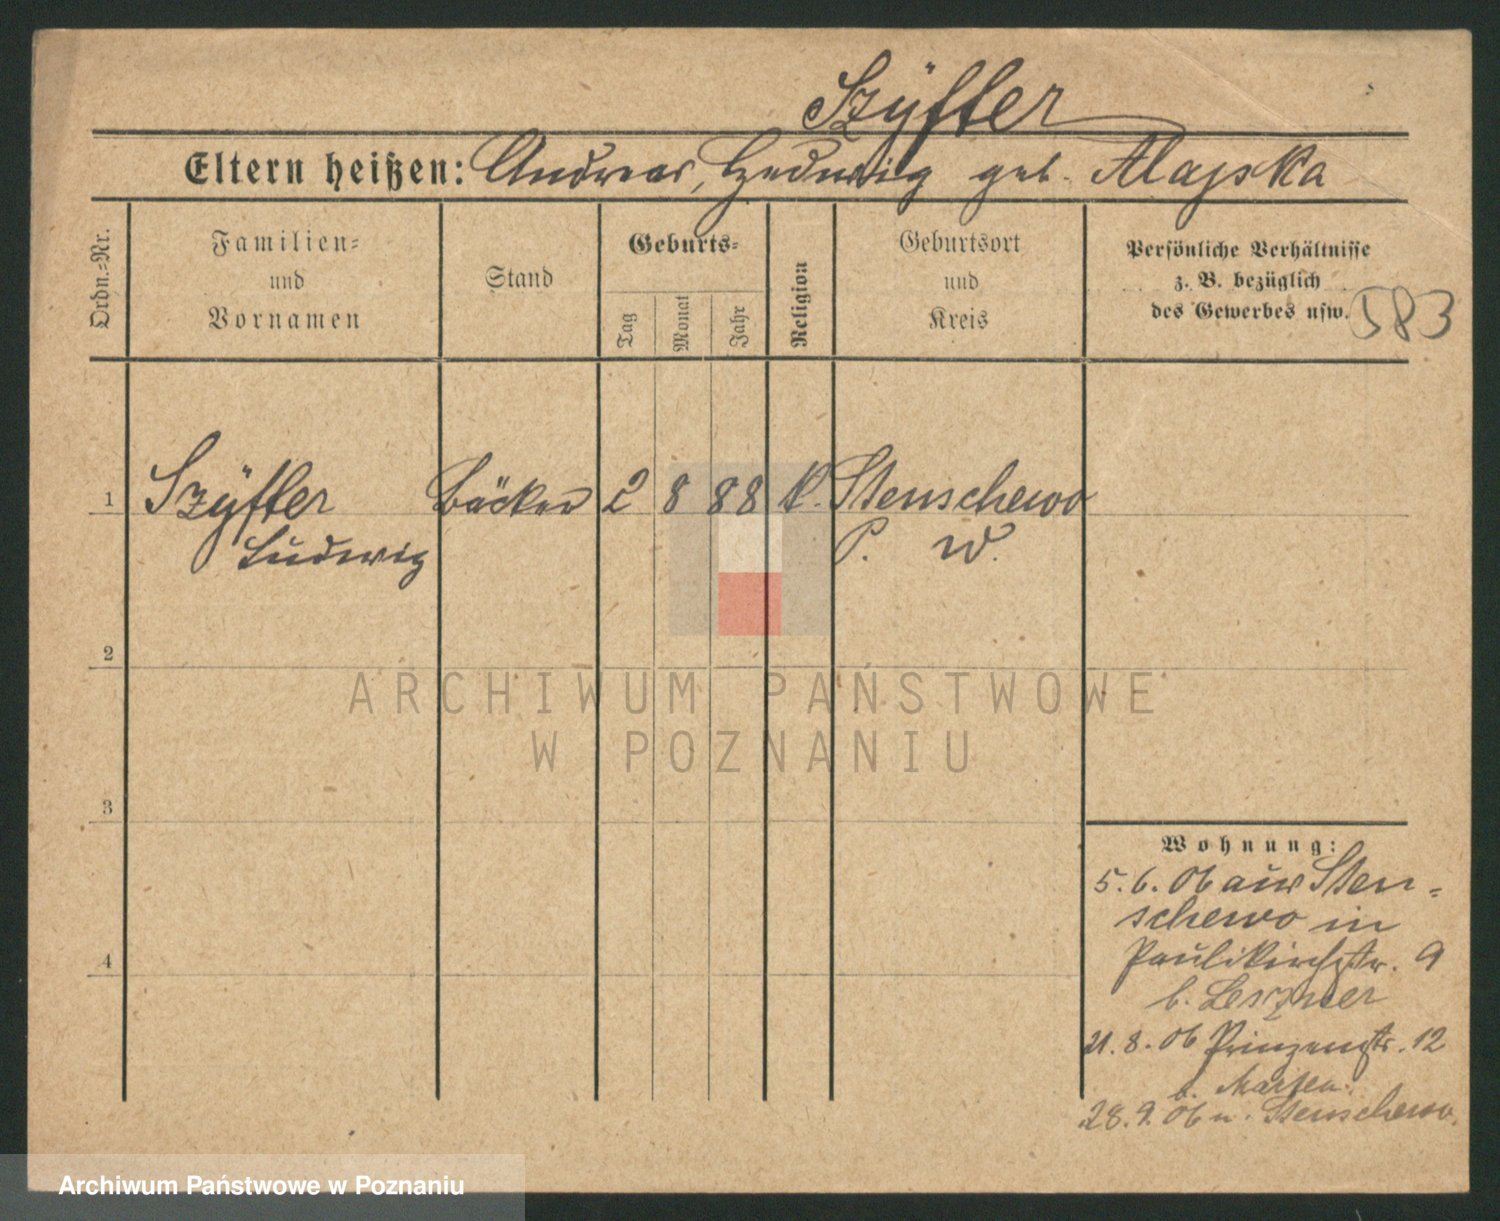 Szÿfter
Eltern heißen: Andreas, Hedwig geb. Alajska
Ordn.-Nr.
Familien-
und
Vornamen
Stand
Geburts-
Tag
Monat
Jahr
Religion
Geburtsort
und
Kreis
Persönliche Verhältnisse
z. B. bezüglich
des Gewerbes usw.
583
1 Szÿfter Bäcker 2 8 88 k. Stenschewo
Ludwig P. W.
2
3
4
ARCHIWUM PAŃSTWOWE
W POZNANIU
Wohnung:
5.6.06 aus Sten-
schewo in
Paulikirchstr. 9
b.
21.8.06 Prinzenstr. 12
b.
28.9.06 n. Stenschewo
Archiwum Państwowe w Poznaniu